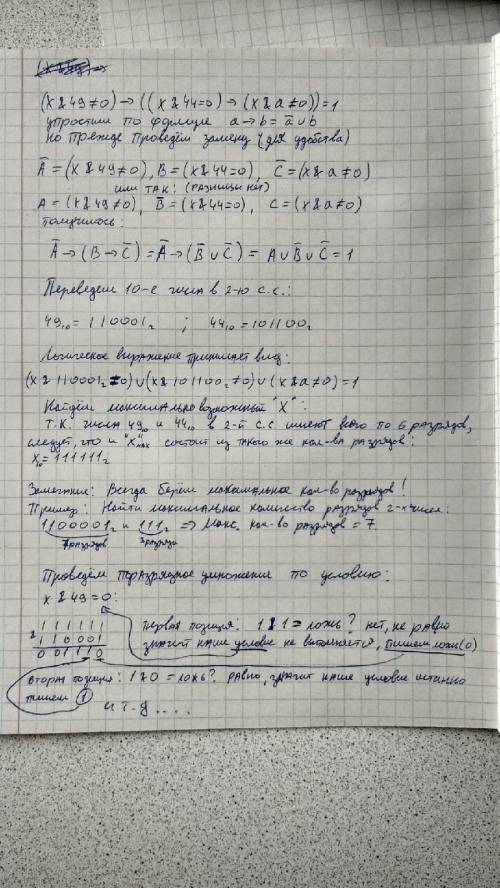 (x&49≠0)→((x&44=0)→(x&a≠0))=1
упростим по формуле a→b=a̅∪b
но прежде проведём замену (для удобства)
A̅=(x&49≠0), B=(x&44=0), C̅=(x&a≠0)
или так: (разницы нет)
A=(x&49≠0), B̅=(x&44=0), C=(x&a≠0)
Получилось:
A̅→(B→C̅)=A̅→(B̅∪C̅)=A∪B̅∪C̅=1
Переведем 10-е числа в 2-ю с.с.:
49₁₀=110001₂ ; 44₁₀=101100₂
Логическое выражение принимает вид:
(x&110001₂=0)∪(x&101100₂≠0)∪(x&a≠0)=1
Найдём максимально возможный "X":
Т.к. числа 49₁₀ и 44₁₀ в 2-й с.с имеют всего по 6 разрядов,
следует, что и "X" max состоит из такого же кол-ва разрядов:
X₁₀=111111₂
Замечание: Всегда берём максимальное кол-во разрядов!
Пример: Найти максимальное количество разрядов 2-х чисел:
1100001₂ и 111₂ => макс. кол-во разрядов = 7.
7 разрядов 3 разряда
Проведём поразрядное умножение по условию:
x&49=0:
111111
& 110001
001110
первая позиция: 1&1=ложь? нет, не равно
значит наше условие не выполняется, пишем ложь(0)
вторая позиция: 1&0=ложь? равно, значит наше условие истинно
пишем 1
и т.д....